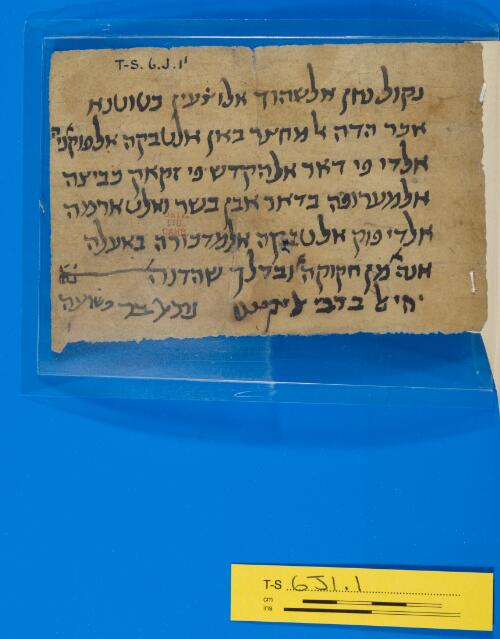 T-S. 6.J.1¹
נקול נחן אלשהוד אלואצעין כטוטנא
אכר הדה מחצר באן אלטבקה אלפוקני
אלדי פי דאר אלהקדש פי זקאק
אלמערופה בדאר אבן בשר ואלטארמה
אלדי פוק אלטבקה אלמדכורה באעלה
אנהא מן חקוקהא ובדלך שהדנה
יחיאל ברבי
T-S 6J1.1
cm
ins